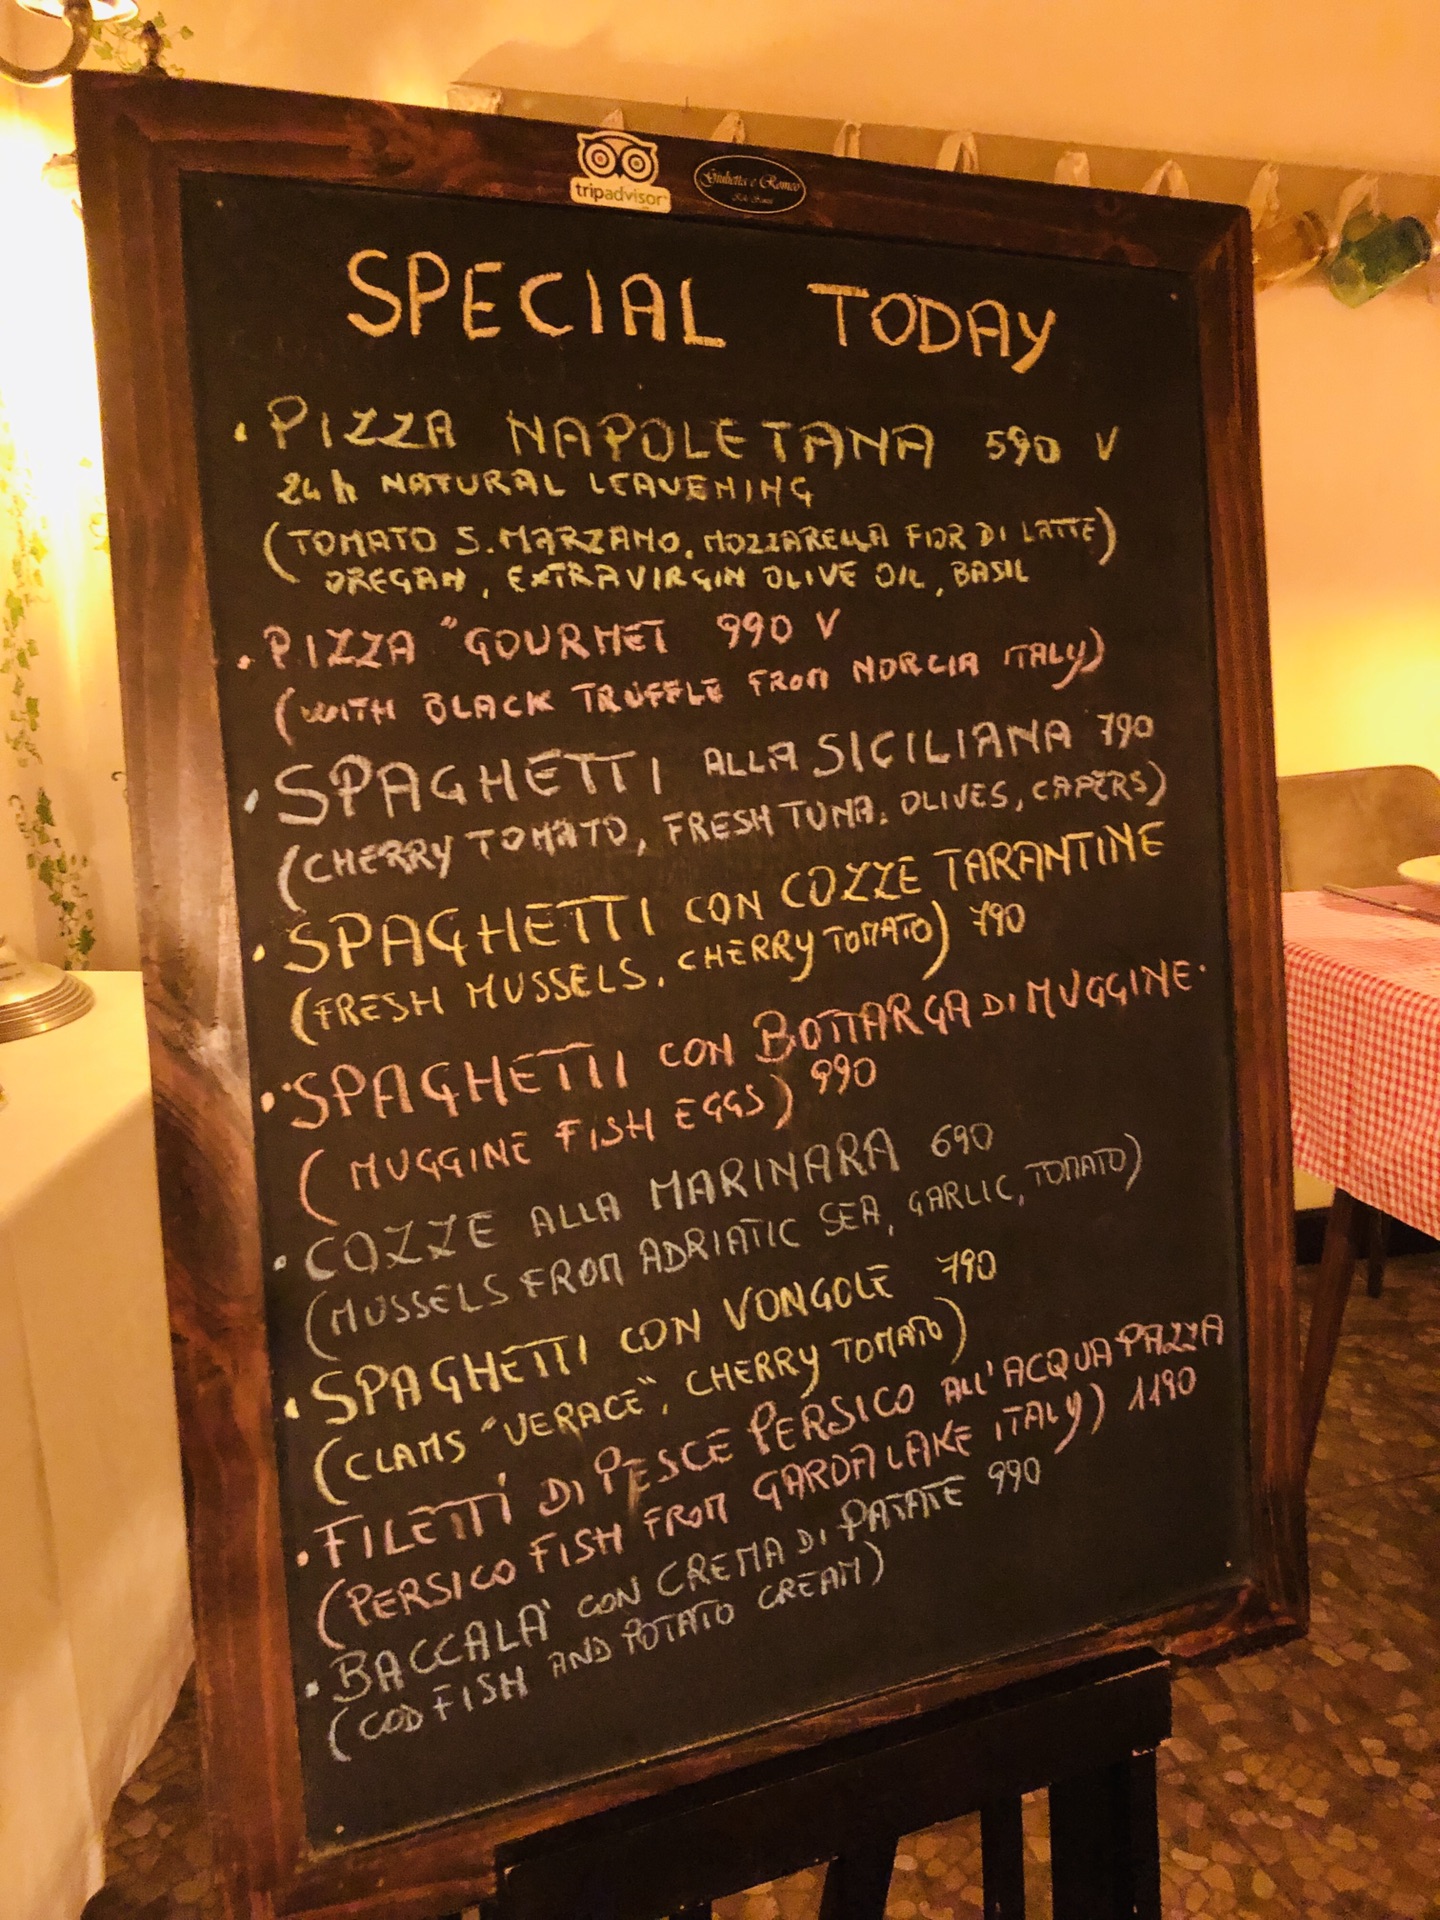 tripadvisor
Giulietta e Romeo
SPECIAL TODAY
• PIZZA NAPOLETANA 590 V
24h NATURAL LEAVENING
(TOMATO S. MARZANO, MOZZARELLA FIOR DI LATTE)
OREGAN, EXTRAVIRGIN OLIVE OIL, BASIL
• PIZZA "GOURMET 990 V
(WITH BLACK TRUFFLE FROM NORCIA ITALY)
• SPAGHETTI ALLA SICILIANA 790
(CHERRY TOMATO, FRESH TUNA, OLIVES, CAPERS)
• SPAGHETTI CON COZZE TARANTINE
(FRESH MUSSELS, CHERRY TOMATO) 790
• SPAGHETTI CON BOTTARGA DI MUGGINE
(MUGGINE FISH EGGS) 990
• COZZE ALLA MARINARA 690
(MUSSELS FROM ADRIATIC SEA, GARLIC, TOMATO)
• SPAGHETTI CON VONGOLE 790
(CLAMS "VERACE", CHERRY TOMATO)
• FILETTI DI PESCE PERSICO ALL'ACQUA PAZZA
(PERSICO FISH FROM GARDA LAKE ITALY) 1190
• BACCALA' CON CREMA DI PATATE 990
(COD FISH AND POTATO CREAM)